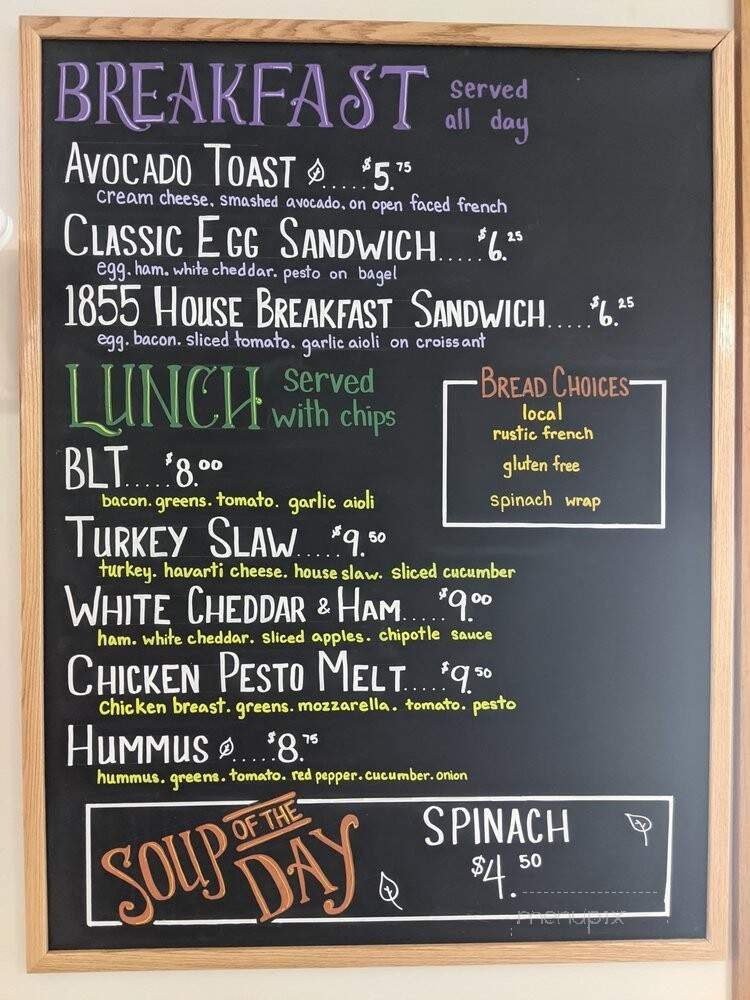 BREAKFAST served all day
AVOCADO TOAST.....$5.75
cream cheese. smashed avocado. on open faced french
CLASSIC EGG SANDWICH.....$6.25
egg. ham. white cheddar. pesto on bagel
1855 HOUSE BREAKFAST SANDWICH.....$6.25
egg. bacon. sliced tomato. garlic aioli on croissant
LUNCH served with chips
BREAD CHOICES
local
rustic french
gluten free
spinach wrap
BLT.....$8.00
bacon. greens. tomato. garlic aioli
TURKEY SLAW.....$9.50
turkey. havarti cheese. house slaw. sliced cucumber
WHITE CHEDDAR & HAM.....$9.00
ham. white cheddar. sliced apples. chipotle sauce
CHICKEN PESTO MELT.....$9.50
Chicken breast. greens. mozzarella. tomato. pesto
HUMMUS.....$8.75
hummus. greens. tomato. red pepper. cucumber. onion
SOUP OF THE DAY
SPINACH
$4.50
menupix